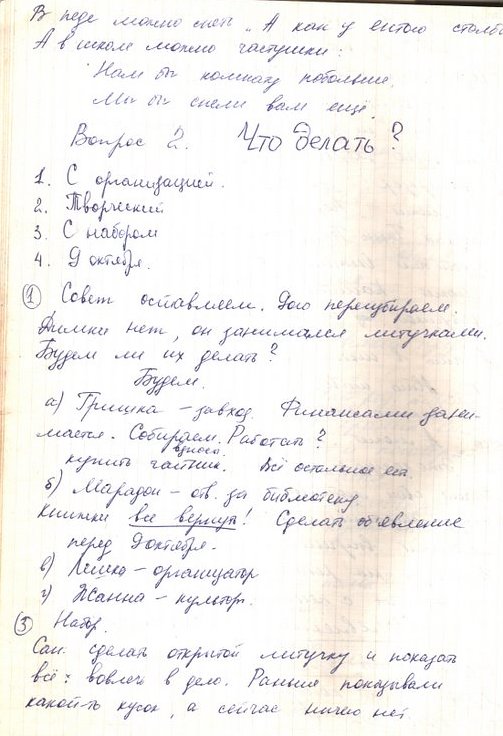 В педе можно спеть „А как у нашего столба
А в школе можно частушки:
Нам бы комнату побольше
Мы бы спели вам ещё.
Вопрос 2. Что делать?
1. С организацией.
2. Творческий
3. С набором
4. 9 октября.
① Совет оставляем. Дого переизбираем.
Димки нет, он занимался летучками.
Будем ли их делать?
Будем.
а) Гришка – завхоз. Финансами зани-
мается. Собираем взносы. Работать?
купить чайник. Всё остальное есть
б) Марадон – отв. за библиотеку
Книжки все вернуть! Сделать объявление
перед 9 октября.
в) Лёшка – организатор
г) Жанна – культорг.
③ Набор.
Сан. сделать открытой летучку и показать
всё: вовлечь в дело. Раньше показывали
какой-то кусок, а сейчас ничего нет